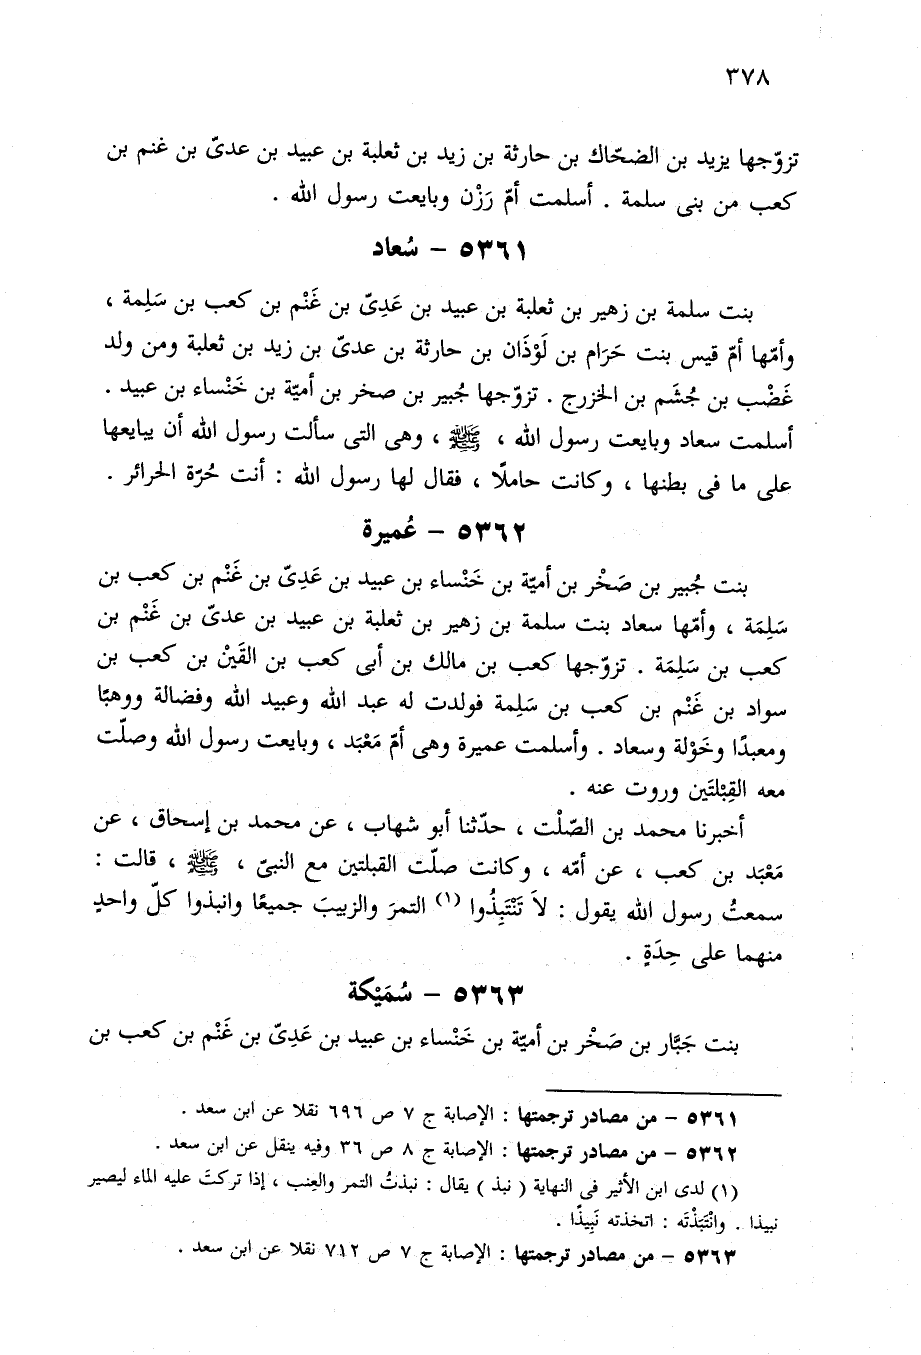 ٣٧٨
تزوّجها يزيد بن الضحّاك بن حارثة بن زيد بن ثعلبة بن عبيد بن عدىّ بن غنم بن
كعب من بنى سلمة . أسلمت أمّ رَزْن وبايعت رسول الله .
٥٣٦١ – سُعاد
بنت سلمة بن زهير بن ثعلبة بن عبيد بن عَدِىّ بن غَنْم بن كعب بن سَلِمة ،
وأمّها أمّ قيس بنت حَرَام بن لَوْذَان بن حارثة بن عدىّ بن زيد بن ثعلبة ومن ولد
غَضْب بن جُشَم بن الخزرج . تزوّجها جُبير بن صخر بن أميّة بن خَنْساء بن عبيد .
أسلمت سعاد وبايعت رسول الله ، ﷺ ، وهى التى سألت رسول الله أن يبايعها
على ما فى بطنها ، وكانت حاملًا ، فقال لها رسول الله : أنت حُرّة الحرائر .
٥٣٦٢ – عُميرة
بنت جُبير بن صَخْر بن أميّة بن خَنْساء بن عبيد بن عَدِىّ بن غَنْم بن كعب بن
سَلِمَة ، وأمّها سعاد بنت سلمة بن زهير بن ثعلبة بن عبيد بن عدىّ بن غَنْم بن
كعب بن سَلِمَة . تزوّجها كعب بن مالك بن أبى كعب بن القَيْنْ بن كعب بن
سواد بن غَنْم بن كعب بن سَلِمة فولدت له عبد الله وعبيد الله وفضالة ووهبًا
ومعبدًا وخَوْلة وسعاد . وأسلمت عميرة وهى أمّ مَعْبَد ، وبايعت رسول الله وصلّت
معه القِبْلتَين وروت عنه .
أخبرنا محمد بن الصّلْت ، حدّثنا أبو شهاب ، عن محمد بن إسحاق ، عن
مَعْبَد بن كعب ، عن أمّه ، وكانت صلّت القبلتين مع النبىّ ، ﷺ ، قالت :
سمعتُ رسول الله يقول : لاَ تَنْتَبِذُوا (١) التمرَ والزبيبَ جميعًا وانبذوا كلّ واحدٍ
منهما على حِدَةٍ .
٥٣٦٣ – سُمَيْكة
بنت جَبَّار بن صَخْر بن أميّة بن خَنْساء بن عبيد بن عَدِىّ بن غَنْم بن كعب بن
٥٣٦١ – من مصادر ترجمتها : الإصابة ج ٧ ص ٦٩٦ نقلا عن ابن سعد .
٥٣٦٢ – من مصادر ترجمتها : الإصابة ج ٨ ص ٣٦ وفيه ينقل عن ابن سعد .
(١) لدى ابن الأثير فى النهاية ( نبذ ) يقال : نبذتُ التمر والعِنب ، إذا تركتَ عليه الماء ليصير
نبيذا . وانْتَبَذْتَه : اتخذته نَبِيذًا .
٥٣٦٣ – من مصادر ترجمتها : الإصابة ج ٧ ص ٧١٢ نقلا عن ابن سعد .